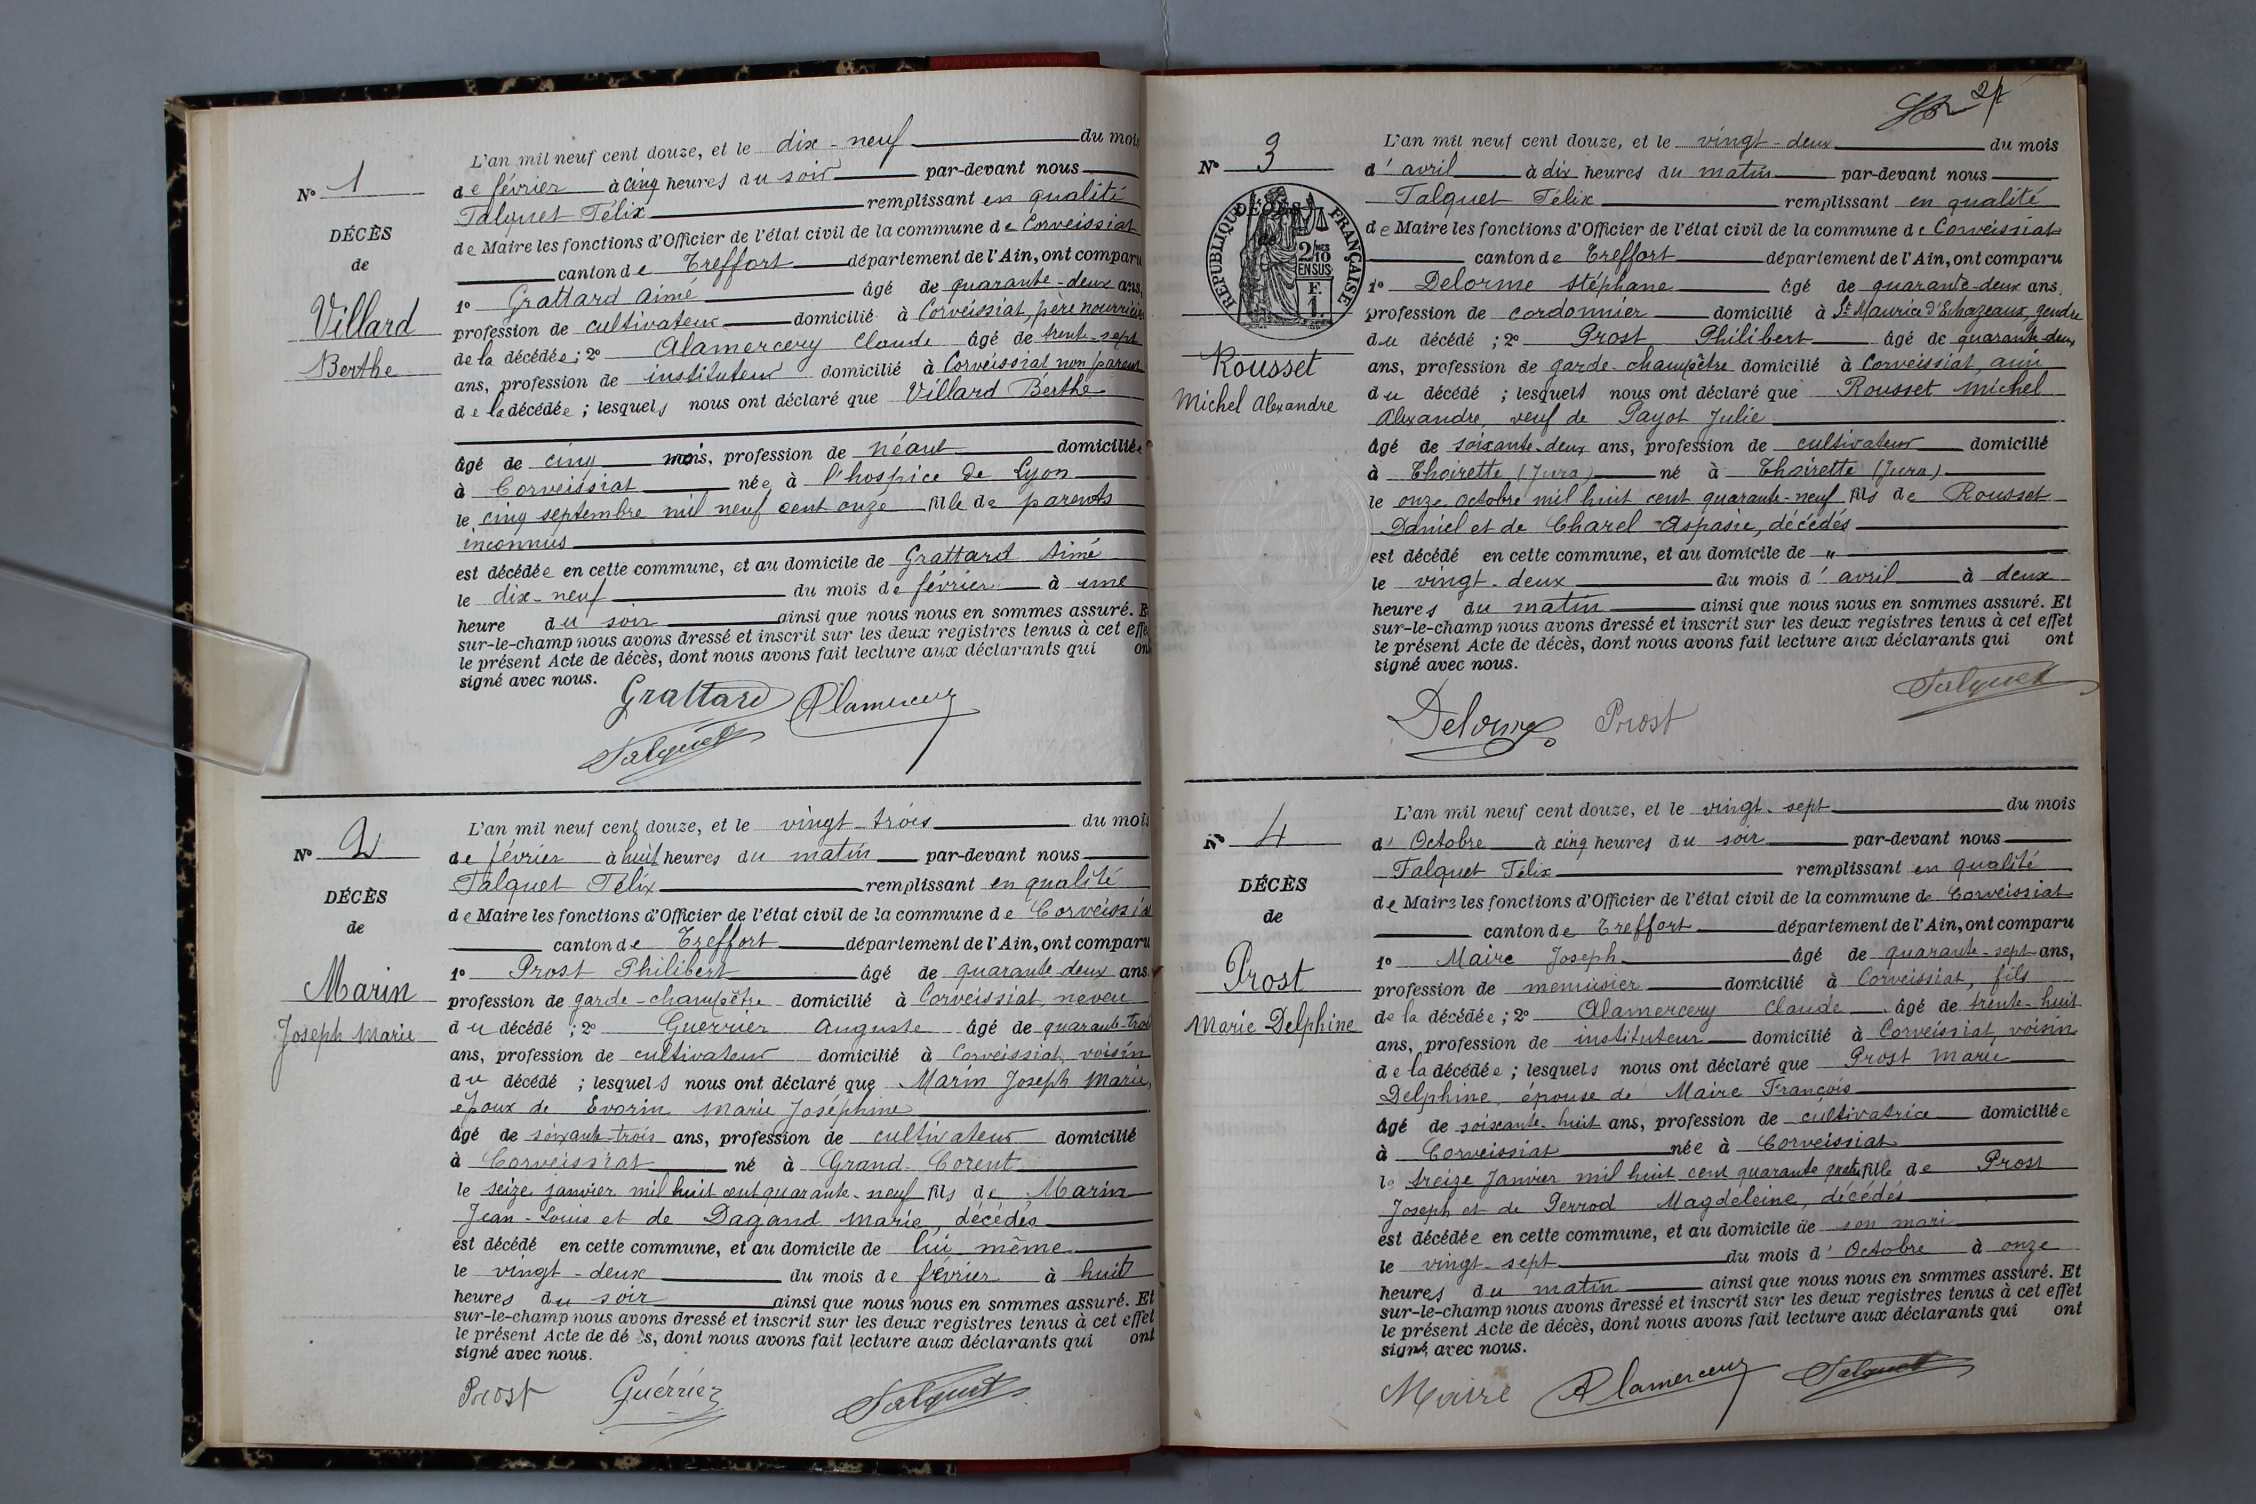 N° 1
DÉCÈS
de
Villard
Berthe
L'an mil neuf cent douze, et le dix-neuf du mois
de février à cinq heures du soir par-devant nous
Falquet Félix remplissant en qualité
de Maire les fonctions d'Officier de l'état civil de la commune de Corveissiat
canton de Treffort département de l'Ain, ont comparu
1° Grattard Aimé âgé de quarante-deux ans,
profession de cultivateur domicilié à Corveissiat, père nourricier
de la décédée ; 2° Alamercery Claude âgé de trente-sept
ans, profession de instituteur domicilié à Corveissiat, non parent
de la décédée ; lesquels nous ont déclaré que Villard Berthe
âgé de cinq mois, profession de néant domiciliée
à Corveissiat née à l'hospice de Lyon
le cinq septembre mil neuf cent onze fille de parents
inconnus
est décédée en cette commune, et au domicile de Grattard Aimé
le dix-neuf du mois de février à une
heure du soir ainsi que nous nous en sommes assuré. Et
sur-le-champ nous avons dressé et inscrit sur les deux registres tenus à cet effet
le présent Acte de décès, dont nous avons fait lecture aux déclarants qui ont
signé avec nous.
Grattard Alamercery
Falquet
N° 2
DÉCÈS
de
Marin
Joseph Marie
L'an mil neuf cent douze, et le vingt-trois du mois
de février à huit heures du matin par-devant nous
Falquet Félix remplissant en qualité
de Maire les fonctions d'Officier de l'état civil de la commune de Corveissiat
canton de Treffort département de l'Ain, ont comparu
1° Prost Philibert âgé de quarante-deux ans,
profession de garde-champêtre domicilié à Corveissiat, neveu
du décédé ; 2° Guerrier Auguste âgé de quarante-trois
ans, profession de cultivateur domicilié à Corveissiat, voisin
du décédé ; lesquels nous ont déclaré que Marin Joseph Marie,
époux de Evorin Marie Joséphine
âgé de soixante-trois ans, profession de cultivateur domicilié
à Corveissiat né à Grand-Corent
le seize janvier mil huit cent quarante-neuf fils de Marin
Jean-Louis et de Dagand Marie, décédés
est décédé en cette commune, et au domicile de lui même
le vingt-deux du mois de février à huit
heures du soir ainsi que nous nous en sommes assuré. Et
sur-le-champ nous avons dressé et inscrit sur les deux registres tenus à cet effet
le présent Acte de décès, dont nous avons fait lecture aux déclarants qui ont
signé avec nous.
Prost Guérrier Falquet
2
N° 3
DÉCÈS
de
RÉPUBLIQUE FRANÇAISE
2/10 MES
EN SUS
F.
1.
Rousset
Michel Alexandre
L'an mil neuf cent douze, et le vingt-deux du mois
d'avril à dix heures du matin par-devant nous
Falquet Félix remplissant en qualité
de Maire les fonctions d'Officier de l'état civil de la commune de Corveissiat
canton de Treffort département de l'Ain, ont comparu
1° Delorme Stéphane âgé de quarante-deux ans,
profession de cordonnier domicilié à St Maurice d'Echazeaux, gendre
du décédé ; 2° Prost Philibert âgé de quarante-deux
ans, profession de garde-champêtre domicilié à Corveissiat, ami
du décédé ; lesquels nous ont déclaré que Rousset Michel
Alexandre, veuf de Payot Julie
âgé de soixante-deux ans, profession de cultivateur domicilié
à Thoirette (Jura) né à Thoirette (Jura)
le onze Octobre mil huit cent quarante-neuf fils de Rousset
Daniel et de Charel Aspasie, décédés
est décédé en cette commune, et au domicile de "
le vingt-deux du mois d'avril à deux
heures du matin ainsi que nous nous en sommes assuré. Et
sur-le-champ nous avons dressé et inscrit sur les deux registres tenus à cet effet
le présent Acte de décès, dont nous avons fait lecture aux déclarants qui ont
signé avec nous.
Falquet
Delorme Prost
N° 4
DÉCÈS
de
Prost
Marie Delphine
L'an mil neuf cent douze, et le vingt-sept du mois
d'Octobre à cinq heures du soir par-devant nous
Falquet Félix remplissant en qualité
de Maire les fonctions d'Officier de l'état civil de la commune de Corveissiat
canton de Treffort département de l'Ain, ont comparu
1° Maire Joseph âgé de quarante-sept ans,
profession de menuisier domicilié à Corveissiat, fils
de la décédée ; 2° Alamercery Claude âgé de trente-huit
ans, profession de instituteur domicilié à Corveissiat, voisin
de la décédée ; lesquels nous ont déclaré que Prost Marie
Delphine, épouse de Maire François
âgé de soixante-huit ans, profession de cultivatrice domiciliée
à Corveissiat née à Corveissiat
le treize Janvier mil huit cent quarante quatre fille de Prost
Joseph et de Perrod Magdeleine, décédés
est décédée en cette commune, et au domicile de son mari
le vingt-sept du mois d'Octobre à onze
heures du matin ainsi que nous nous en sommes assuré. Et
sur-le-champ nous avons dressé et inscrit sur les deux registres tenus à cet effet
le présent Acte de décès, dont nous avons fait lecture aux déclarants qui ont
signé avec nous.
Maire Alamercery Falquet